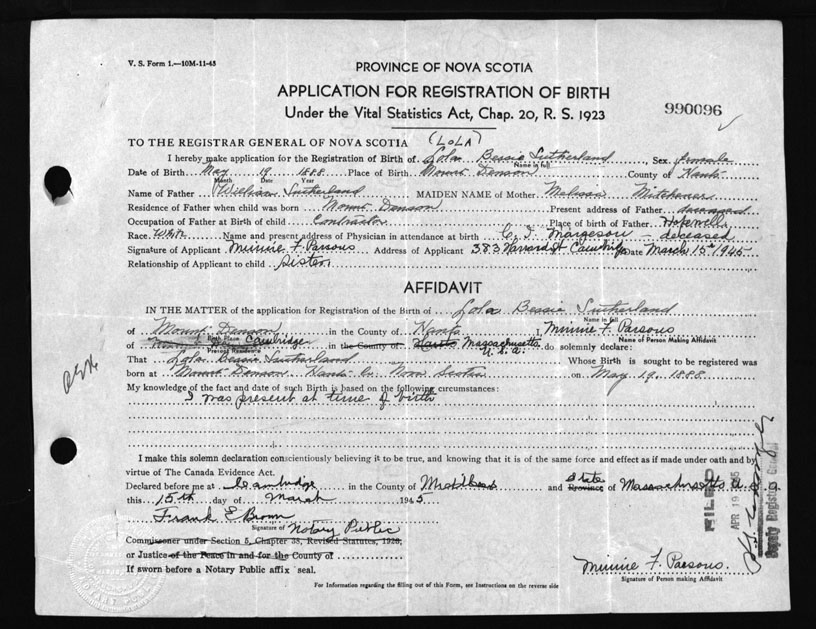 V. S. Form 1.—10M-11-43
PROVINCE OF NOVA SCOTIA
APPLICATION FOR REGISTRATION OF BIRTH
Under the Vital Statistics Act, Chap. 20, R. S. 1923
990096
TO THE REGISTRAR GENERAL OF NOVA SCOTIA (LOLA)
I hereby make application for the Registration of Birth of Lola Bessie Sutherland, Sex female
Name in full
Date of Birth May 19 1888 Place of Birth Mount Denson County of Hants
Month Day Year
Name of Father William Sutherland MAIDEN NAME of Mother Melissa Mitchener
Residence of Father when child was born Mount Denson Present address of Father deceased
Occupation of Father at Birth of child Contractor Place of birth of Father Hopewell
Race White Name and present address of Physician in attendance at birth C. I. Margeson - deceased
Signature of Applicant Minnie F. Parsons Address of Applicant 383 Harvard St Cambridge Date March 15th 1945
Relationship of Applicant to child sister
AFFIDAVIT
IN THE MATTER of the application for Registration of the Birth of Lola Bessie Sutherland
Name in full
of Mount Denson in the County of Hants I, Minnie F. Parsons
Birth Place Name of Person Making Affidavit
of Cambridge in the County of Hants Massachusetts U.S.A. do solemnly declare:
Present Residence
That Lola Bessie Sutherland Whose Birth is sought to be registered was
born at Mount Denson Hants Co. Nova Scotia on May 19, 1888.
My knowledge of the fact and date of such Birth is based on the following circumstances:
I was present at time of birth
I make this solemn declaration conscientiously believing it to be true, and knowing that it is of the same force and effect as if made under oath and by
virtue of The Canada Evidence Act.
Declared before me at Cambridge in the County of Middlesex and State Province of Massachusetts U.S.A.
this 15th day of March 1945.
Frank E Brown
Signature of Notary Public
Commissoner under Section 5, Chapter 38, Revised Statutes, 1923,
or Justice of the Peace in and for the County of
If sworn before a Notary Public affix seal.
Minnie F. Parsons.
Signature of Person making Affidavit
For Information regarding the filling out of this Form, see Instructions on the reverse side
FILED
APR 19 1945
Deputy Registrar General